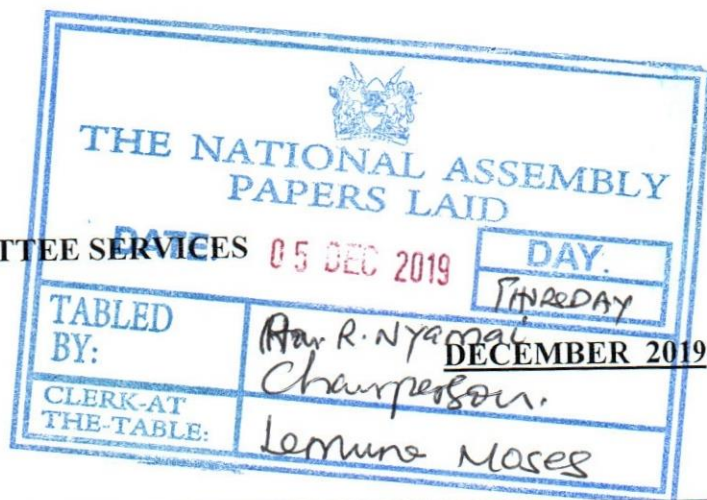 THE NATIONAL ASSEMBLY
PAPERS LAID
TTEE SERVICES
DATE: 05 DEC 2019
DAY:
THURSDAY
TABLED
BY:
Hon. R. Nyamai
Chairperson.
DECEMBER 2019
CLERK-AT
THE-TABLE:
Lemuna Moses